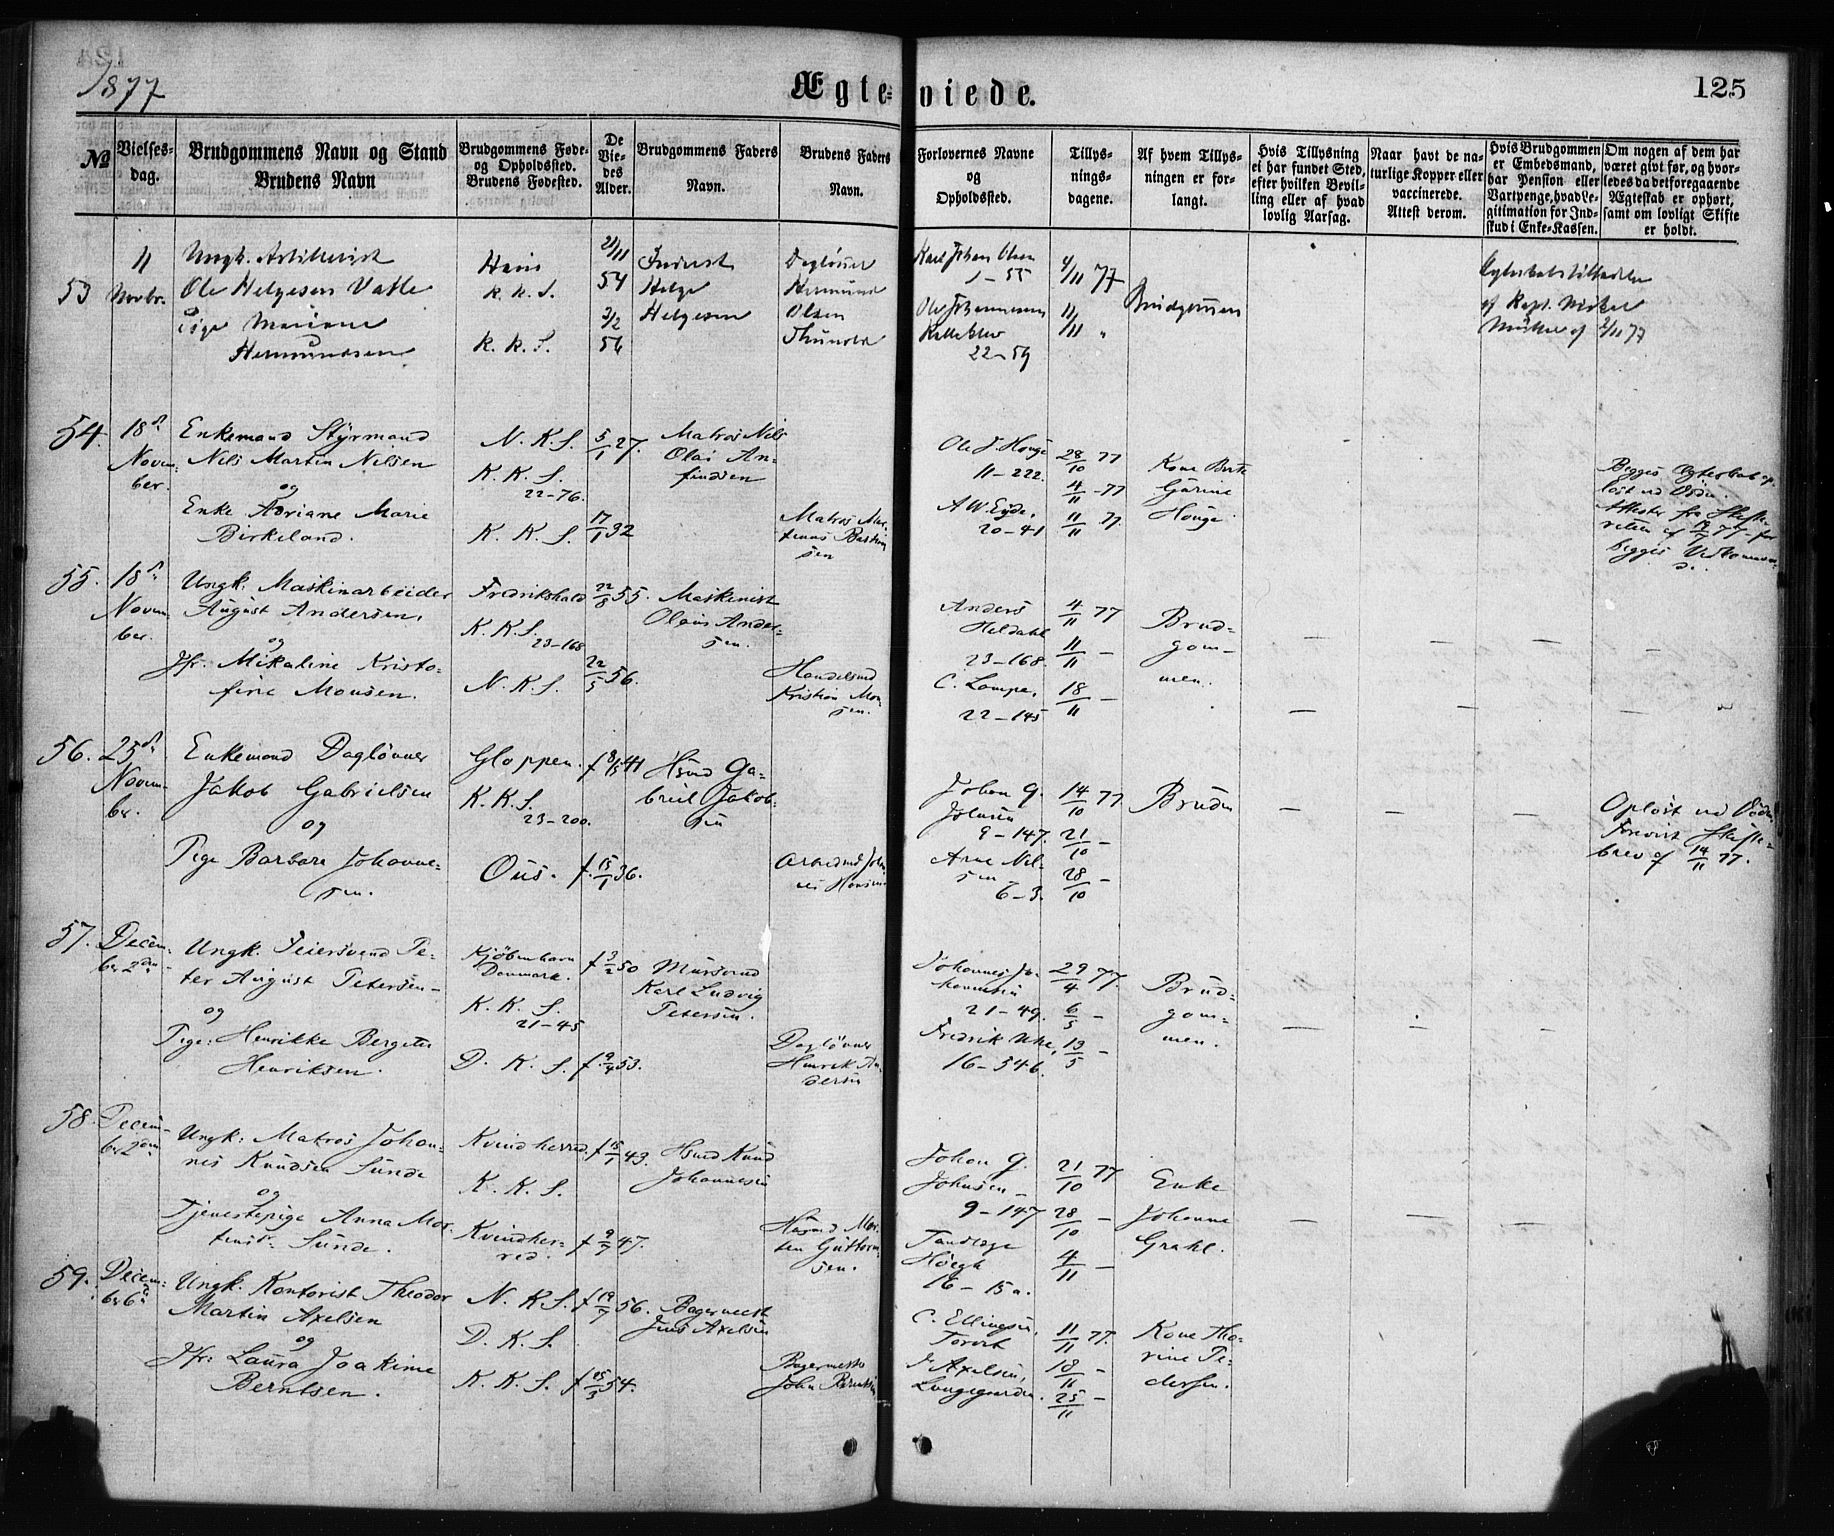 1877
Ægteviede.
125
№
Vielses-
dag.
Brudgommens Navn og Stand
Brudens Navn
Brudgommens Føde-
og Opholdssted.
Brudens Fødested.
De
Vie-
des
Alder.
Brudgommens Faders
Navn.
Brudens Faders
Navn.
Forlovernes Navne
og
Opholdssted.
Tillys-
nings-
dagene.
Af hvem Tillys-
ningen er for-
langt.
Hvis Tillysning
ei har fundet Sted,
efter hvilken Bevil-
ling eller af hvad
lovlig Aarsag.
Naar havt de na-
turlige Kopper eller
vaccinerede.
Attest derom.
Hvis Brudgommen
er Embedsmand,
har Pension eller
Vartpenge, hvad Le-
gitimation for Ind-
skud i Enke-Kassen.
Om nogen af dem har
været givt før, og hvor-
ledes da det foregaaende
Ægteskab er ophørt,
samt om lovligt Skifte
er holdt.
53
11
Novbr.
Ungk. Artillerist
Ole Helgesen Vatle
Pige Mariane
Hermundsen
K. K. S.
K. K. S.
21/11
54
3/2
56
Inderst
Helge
Helgesen
Dagløner
Hermund
Olsen
Karl Johan Olsen
1–55
Ole Johannesen
22–59
4/11 77
11/11 "
Brudgommen
af Kapt. Michal
Müller af 2/11 77
54.
18d
Novem-
ber.
Enkemand Styrmand
Nils Martin Nilsen
og
Enke Adriane Marie
Birkeland.
N. K. S.
K. K. S.
22–76.
K. K. S.
5/1 27.
17/1 32
Matros Nils
Olai An-
findsen
Matros Mar-
sen
Ole J. Houge
11–222.
A W. Eyde.
20–41
28/10 77
4/11 –77
11/11 77.
Kone Berte
Gurine
Houge.
Begges Ægteskab op-
løst ved Døden.
Attester fra Skifte-
retten af 77 – for
begges Vedkommen-
de.
55.
18d
Novem-
ber.
Ungk. Maskinarbeider
August Andersen,
og
Jfr. Mikaline Kristo-
fine Monsen.
Fredrikshald
K. K. S.
23–168
N. K. S.
22/8 55.
22/5 56.
Maskinist
Olaus Ander-
sen.
Handelsmd
Kristian Mon-
sen.
Anders
Heldahl
23–168.
C. Lampe,
22–145
4/11 77
11/11 –
18/11 –
Brud-
gom-
men.
56.
25d
Novem-
ber.
Enkemand Dagløner
Jakob Gabrielsen
og
Pige Barbara Johanne-
sen.
Gloppen.
K. K. S.
23–200.
Ous.
f 8/5 41
f. 15/1 36.
Hsmd Ga-
briel Jakob-
sen
Arbeidsmd Johan-
nes Monsen
Johan G.
Johnsen
9–147.
Arne Nil-
sen
6–3.
14/10 77
21/10 –
28/10 –
Bruden
Opløst ved Døden
Forevist Skifte-
brev af 14/11 77.
57.
Decem-
ber 2den
Ungk. Feiersvend Pe-
ter August Petersen –
og
Pige: Henrikke Bergete
Henriksen.
Kjøbenhavn
Danmark.
K. K. S.
21–45
D. K. S.
f 3/2 50
f. 9/4 53.
Mursvend
Karl Ludvig
Petersen.
Dagløner
Henrik An-
dersen
Johannes Jo-
hannesen
21–49.
Fredrik Uhe,
16–546.
29/4 77.
6/5 –
13/5 –
Brud-
gom-
men.
58.
Decem-
ber 2den
Ungk: Matros Johan-
nes Knudsen Sunde
og
Tjenestepige Anna Mor-
tensd. Sunde.
Kvindherred.
K. K. S.
Kvindher-
red.
f 15/1 43.
f 9/7 47.
Hsmd Knud
Johannesen
Husmd Mor-
ten Guttorm-
sen.
Johan G.
Johnsen –
9–147
Tandlæge
Höegh
16–15a.
21/10 77
28/10 –
4/11 –
Enke
Johanne
Grahl.
59.
Decem-
ber 6d
Ungk. Kontorist Theodor
Martin Axelsen
og
Jfr: Laura Joakime
Berntsen.
N. K. S.
D. K. S.
K. K. S.
f 19/7 56.
f 15/3 54.
Bagermest
Jens Axelsen
Bagermester
John Berntsen
C. Ellingsen,
Torvet
J Axelsen,
Langegaarden.
11/11 77.
18/11 –
25/11 –
Kone Tho-
rine Pe-
dersen.